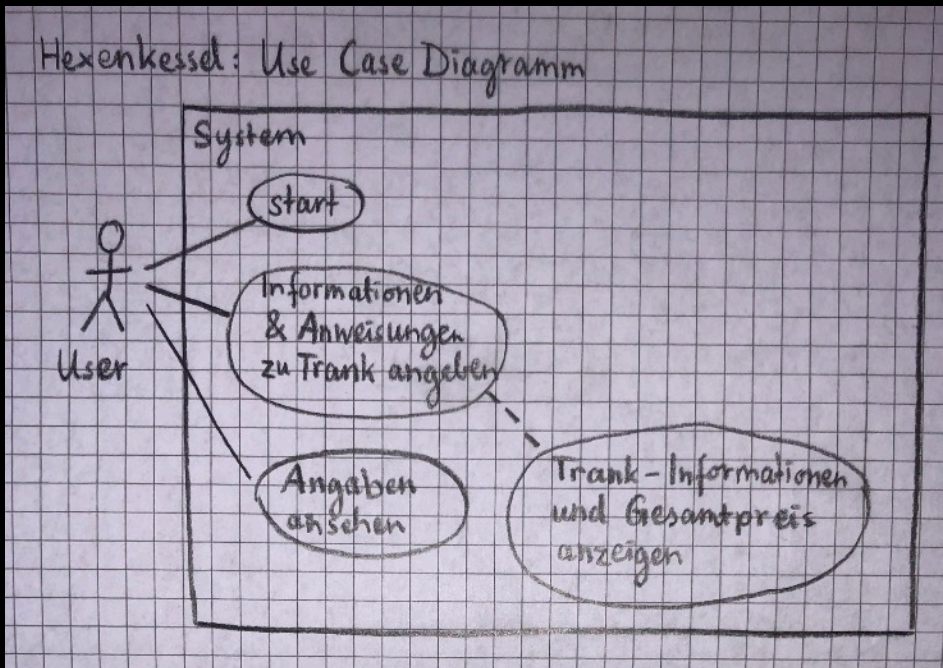 Hexenkessel: Use Case Diagramm
System
start
Informationen
& Anweisungen
zu Trank angeben
User
Angaben
ansehen
Trank-Informationen
und Gesamtpreis
anzeigen